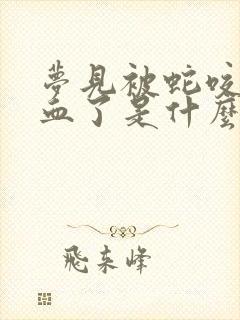 夢見被蛇咬
血了是什麼
飛來峰